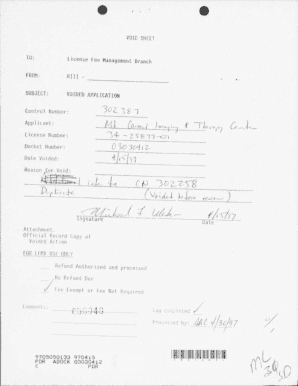 VOID SHEET
TO: License Fee Management Branch
FROM: RIII -
SUBJECT: VOIDED APPLICATION
Control Number: 302387
Applicant: Mt. Carmel Imaging & Therapy Center
License Number: 34-25877-01
Docket Number: 03030412
Date Voided: 4/15/97
Reason for Void:
CN 302258
Duplicate (Voided before review)
Signature Date
4/15/97
Attachment:
Official Record Copy of
Voided Action
FOR LFMB USE ONLY
Refund Authorized and processed
No Refund Due
Fee Exempt or Fee Not Required
Comments: Log completed
Processed by: 4/30/97
9705050103 970415
PDR ADOCK 03030412
C PDR